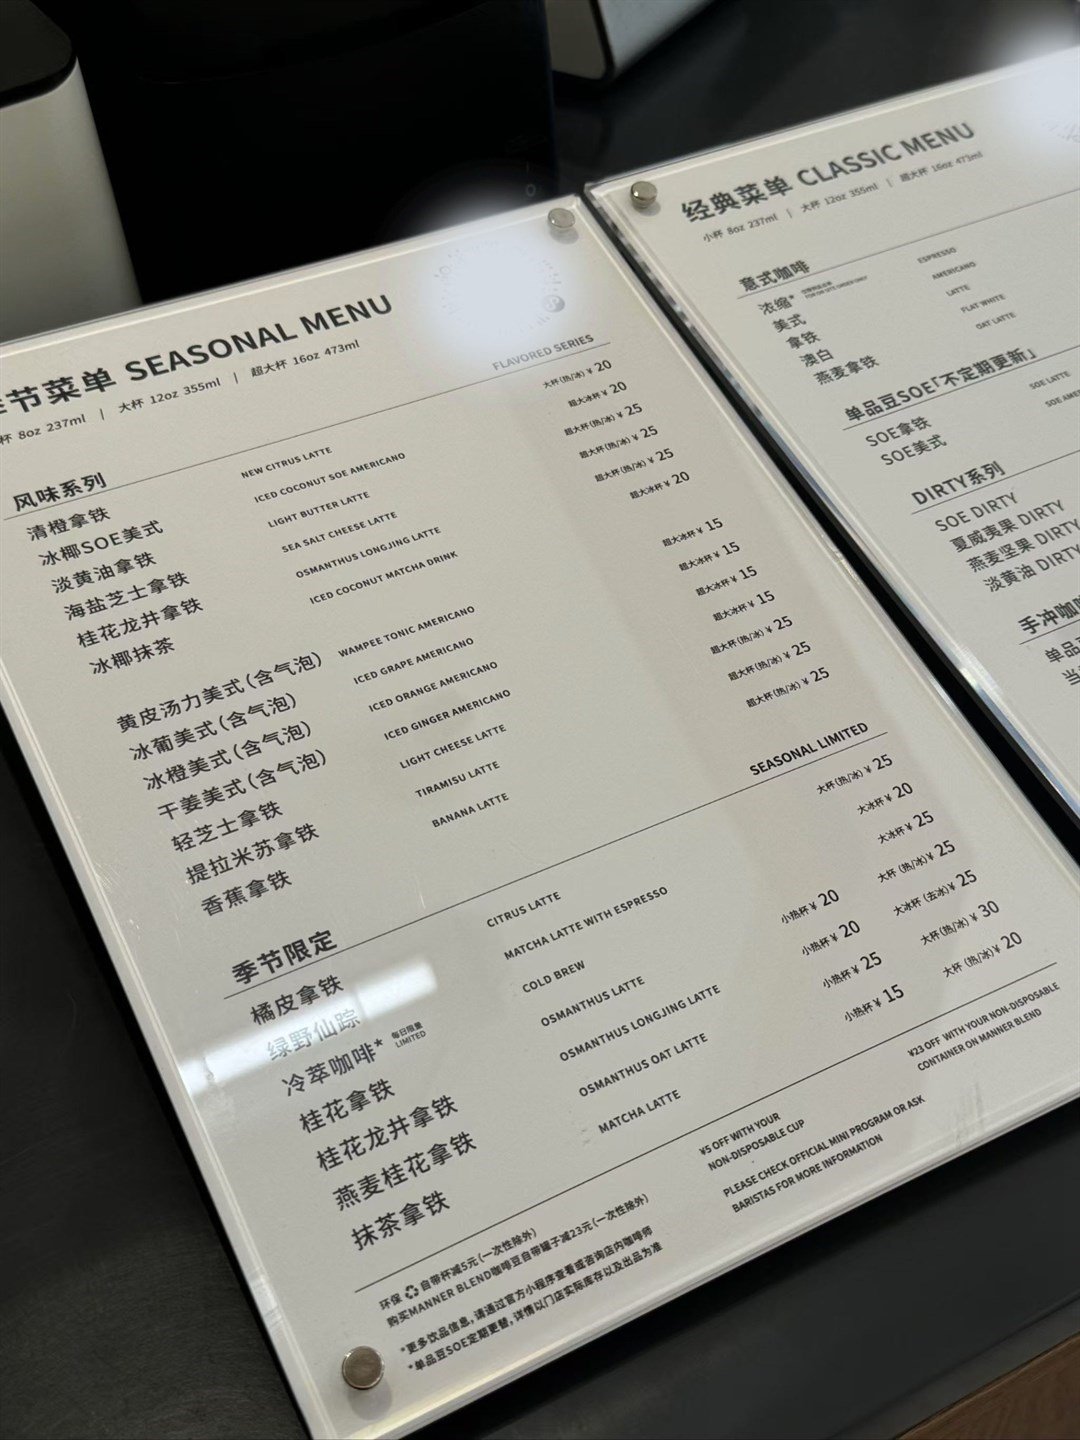 节菜单 SEASONAL MENU
杯 8oz 237ml | 大杯 12oz 355ml | 超大杯 16oz 473ml
风味系列 FLAVORED SERIES
清橙拿铁 NEW CITRUS LATTE 大杯(热/冰) ¥ 20
冰椰SOE美式 ICED COCONUT SOE AMERICANO 超大冰杯 ¥ 20
淡黄油拿铁 LIGHT BUTTER LATTE 超大杯(热/冰) ¥ 25
海盐芝士拿铁 SEA SALT CHEESE LATTE 超大杯(热/冰) ¥ 25
桂花龙井拿铁 OSMANTHUS LONGJING LATTE 超大杯(热/冰) ¥ 25
冰椰抹茶 ICED COCONUT MATCHA DRINK 超大冰杯 ¥ 20
黄皮汤力美式(含气泡) WAMPEE TONIC AMERICANO 超大冰杯 ¥ 15
冰葡美式(含气泡) ICED GRAPE AMERICANO 超大冰杯 ¥ 15
冰橙美式(含气泡) ICED ORANGE AMERICANO 超大冰杯 ¥ 15
干姜美式(含气泡) ICED GINGER AMERICANO 超大冰杯 ¥ 15
轻芝士拿铁 LIGHT CHEESE LATTE 超大杯(热/冰) ¥ 25
提拉米苏拿铁 TIRAMISU LATTE 超大杯(热/冰) ¥ 25
香蕉拿铁 BANANA LATTE 超大杯(热/冰) ¥ 25
季节限定 SEASONAL LIMITED
橘皮拿铁 CITRUS LATTE 大杯(热/冰) ¥ 25
绿野仙踪 MATCHA LATTE WITH ESPRESSO 大冰杯 ¥ 20
冷萃咖啡* 每日限量 LIMITED COLD BREW 大冰杯 ¥ 25
桂花拿铁 OSMANTHUS LATTE 小热杯 ¥ 20 大杯 (热/冰)¥ 25
桂花龙井拿铁 OSMANTHUS LONGJING LATTE 小热杯 ¥ 20 大冰杯 (去冰)¥ 25
燕麦桂花拿铁 OSMANTHUS OAT LATTE 小热杯 ¥ 25 大杯(热/冰) ¥ 30
抹茶拿铁 MATCHA LATTE 小热杯 ¥ 15 大杯 (热/冰)¥ 20
环保 自带杯减5元(一次性除外)
购买MANNER BLEND咖啡豆自带罐子减23元(一次性除外)
*更多饮品信息,请通过官方小程序查看或咨询店内咖啡师
*单品豆SOE定期更替,详情以门店实际库存以及出品为准
¥5 OFF WITH YOUR
NON-DISPOSABLE CUP
¥23 OFF WITH YOUR NON-DISPOSABLE
CONTAINER ON MANNER BLEND
PLEASE CHECK OFFICIAL MINI PROGRAM OR ASK
BARISTAS FOR MORE INFORMATION
经典菜单 CLASSIC MENU
小杯 8oz 237ml | 大杯 12oz 355ml | 超大杯 16oz 473ml
意式咖啡
浓缩* FOR ON SITE ORDER ONLY ESPRESSO
美式 AMERICANO
拿铁 LATTE
澳白 FLAT WHITE
燕麦拿铁 OAT LATTE
单品豆SOE「不定期更新」
SOE拿铁 SOE LATTE
SOE美式 SOE AME
DIRTY系列
SOE DIRTY
夏威夷果 DIRTY
燕麦坚果 DIRTY
淡黄油 DIRTY
手冲咖
单品
当